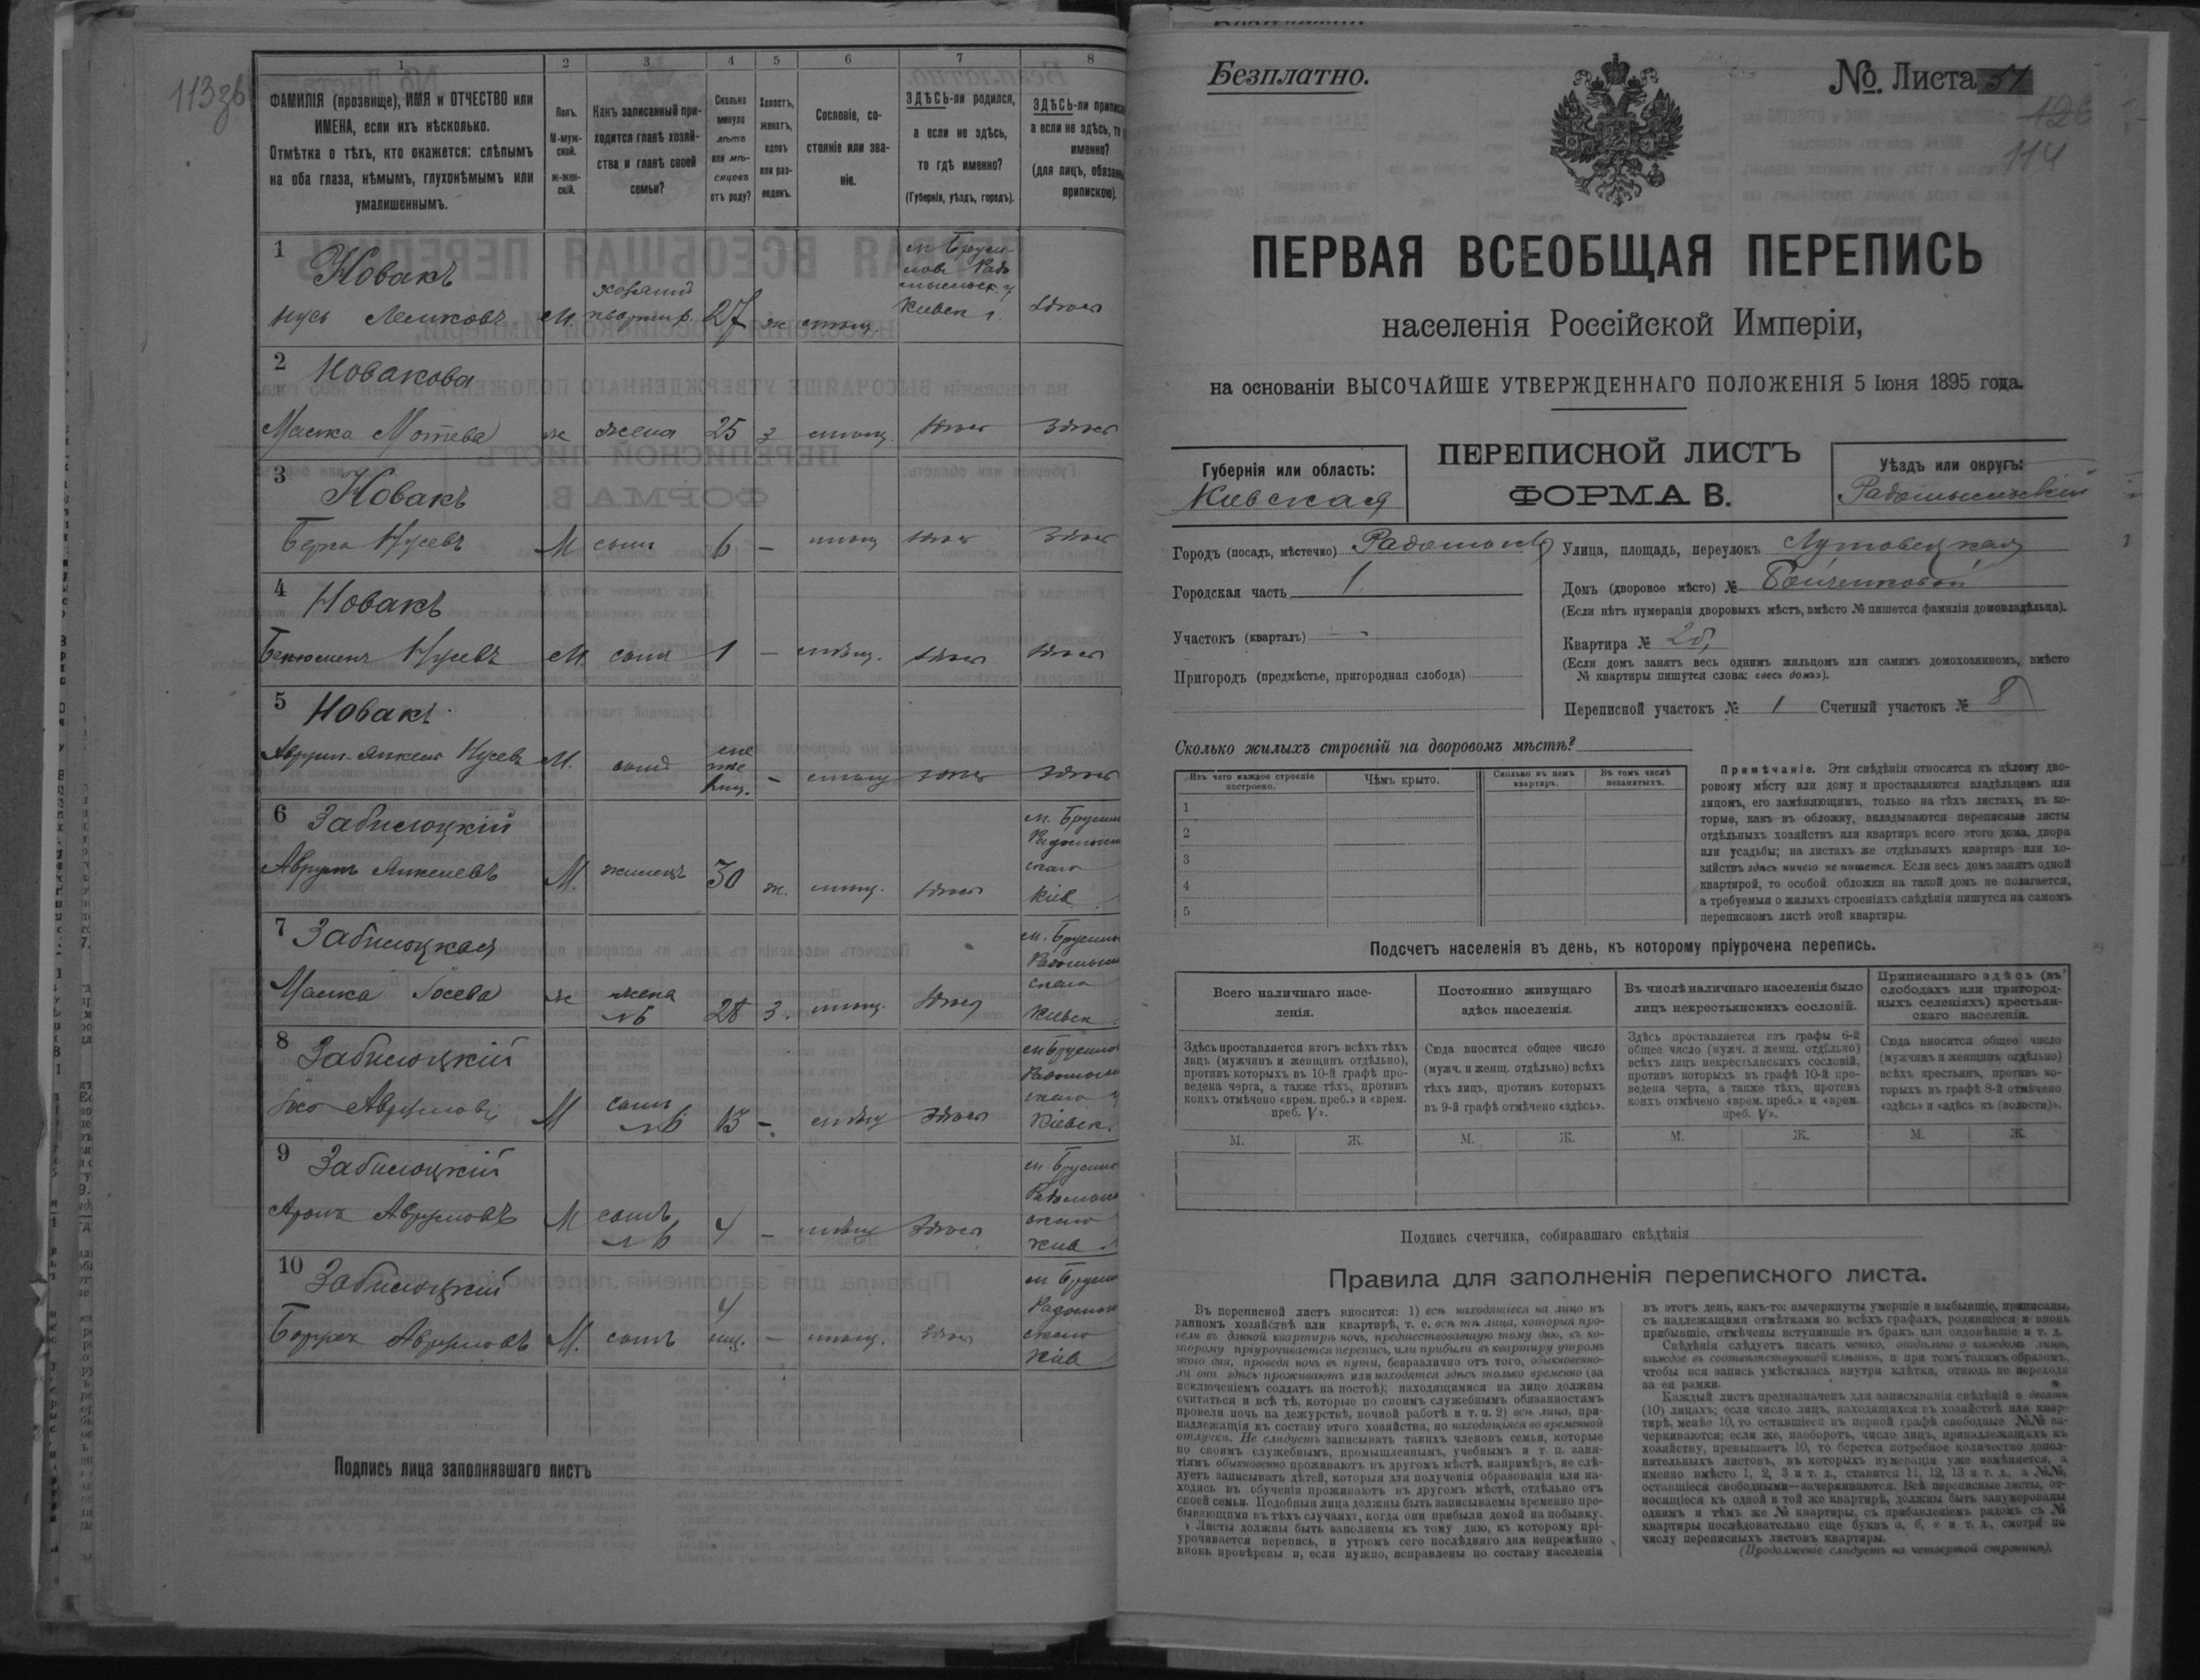 113 зв
1 2 3 4 5 6 7 8
ФАМИЛІЯ (прозвище), ИМЯ и ОТЧЕСТВО или
ИМЕНА, если ихъ нѣсколько.
Отмѣтка о тѣхъ, кто окажется: слѣпымъ
на оба глаза, нѣмымъ, глухонѣмымъ или
умалишеннымъ.
Полъ.
М-муж-
ской.
ж-жен-
скій.
Какъ записанный при-
ходится главѣ хозяй-
ства и главѣ своей
семьи?
Сколько
минуло
лѣтъ
или мѣ-
сяцевъ
отъ роду?
Холостъ,
женатъ,
вдовъ
или раз-
веденъ.
Сословіе, со-
стояніе или зва-
ніе.
ЗДѢСЬ-ли родился,
а если не здѣсь,
то гдѣ именно?
(Губернія, уѣздъ, городъ).
ЗДѢСЬ-ли приписа
а если не здѣсь, то
именно?
(для лицъ, обязанн
припискою).
1 Новакъ
Нусь М. хозяинъ квартир. 27 ж мѣщ. Кіевск г. здѣсь
2 Новакова
Маська Мотева ж жена 25 з мѣщ. здѣсь здѣсь
3 Новакъ
Берко Нусевъ М сынъ 6 — мѣщ здѣсь здѣсь
4 Новакъ
Бенюменъ Нусевъ М сынъ 1 — мѣщ. здѣсь здѣсь
5 Новакъ
Нусевъ М. сынъ — мѣщ здѣсь здѣсь
6 Забилоцкій
Аврумъ Янкелевъ М. жилецъ 30 ж. мѣщ. здѣсь
7 Забилоцкая
Маська Іосева ж жена №6 28 з. мѣщ. здѣсь
8 Забилоцкій
Аврумовъ М сынъ №6 13 — мѣщ здѣсь
9 Забилоцкій
Аронъ Аврумовъ М сынъ №6 4 — мѣщ здѣсь
10 Забилоцкій
Аврумовъ М. сынъ 4 мц. — мѣщ. здѣсь
Подпись лица заполнявшаго листъ
Безплатно.
№. Листа 51
126
114
ПЕРВАЯ ВСЕОБЩАЯ ПЕРЕПИСЬ
населенія Россійской Имперіи,
на основаніи ВЫСОЧАЙШЕ УТВЕРЖДЕННАГО ПОЛОЖЕНІЯ 5 Іюня 1895 года.
Губернія или область:
Кіевская
ПЕРЕПИСНОЙ ЛИСТЪ
ФОРМА В.
Уѣздъ или округъ:
Радомысльскій
Городъ (посадъ, мѣстечко) Радомысль
Городская часть 1
Участокъ (кварталъ) —
Пригородъ (предмѣстье, пригородная слобода)
Улица, площадь, переулокъ
Домъ (дворовое мѣсто) № Бойченковой
(Если нѣтъ нумераціи дворовыхъ мѣстъ, вмѣсто № пишется фамилія домовладѣльца).
Квартира № 2б,
(Если домъ занятъ весь однимъ жильцомъ или самимъ домохозяиномъ, вмѣсто
№ квартиры пишутся слова: «весь домъ»).
Переписной участокъ № 1 Счетный участокъ № 8
Сколько жилыхъ строеній на дворовомъ мѣстѣ?
Изъ чего каждое строеніе
построено.
Чѣмъ крыто.
Сколько въ немъ
квартиръ.
Въ томъ числѣ
незанятыхъ.
1
2
3
4
5
Примѣчаніе. Эти свѣдѣнія относятся къ цѣлому дво-
ровому мѣсту или дому и проставляются владѣльцемъ или
лицомъ, его замѣняющимъ, только на тѣхъ листахъ, въ ко-
торые, какъ въ обложку, вкладываются переписные листы
отдѣльныхъ хозяйствъ или квартиръ всего этого дома, двора
или усадьбы; на листахъ же отдѣльныхъ квартиръ или хо-
зяйствъ здѣсь ничего не пишется. Если весь домъ занятъ одной
квартирой, то особой обложки на такой домъ не полагается,
а требуемыя о жилыхъ строеніяхъ свѣдѣнія пишутся на самомъ
переписномъ листѣ этой квартиры.
Подсчетъ населенія въ день, къ которому пріурочена перепись.
Всего наличнаго насе-
ленія.
Постоянно живущаго
здѣсь населенія.
Въ числѣ наличнаго населенія было
лицъ некрестьянскихъ сословій.
Приписаннаго здѣсь (въ
слободахъ или пригород-
ныхъ селеніяхъ) крестьян-
скаго населенія.
Здѣсь проставляется итогъ всѣхъ тѣхъ
лицъ (мужчинъ и женщинъ отдѣльно),
противъ которыхъ въ 10-й графѣ про-
ведена черта, а также тѣхъ, противъ
коихъ отмѣчено «врем. преб.» и «врем.
преб. V».
Сюда вносится общее число
(мужч. и женщ. отдѣльно) всѣхъ
тѣхъ лицъ, противъ которыхъ
въ 9-й графѣ отмѣчено «здѣсь».
Здѣсь проставляется изъ графы 6-й
общее число (мужч. и женщ. отдѣльно)
всѣхъ лицъ некрестьянскихъ сословій,
противъ которыхъ въ графѣ 10-й про-
ведена черта, а также тѣхъ, противъ
коихъ отмѣчено «врем. преб.» и «врем.
преб. V».
Сюда вносится общее число
(мужчинъ и женщинъ отдѣльно)
всѣхъ крестьянъ, противъ ко-
торыхъ въ графѣ 8-й отмѣчено
«здѣсь» и «здѣсь къ (волости)».
М. Ж. М. Ж. М. Ж. М. Ж.
Подпись счетчика, собиравшаго свѣдѣнія
Правила для заполненія переписного листа.
Въ переписной листъ вносятся: 1) всѣ находящіеся на лицо въ
данномъ хозяйствѣ или квартирѣ, т. е. всѣ тѣ лица, которыя про-
вели въ данной квартирѣ ночь, предшествовавшую тому дню, къ ко-
торому пріурочивается перепись, или прибыли въ квартиру утромъ
того дня, проведя ночь въ пути, безразлично отъ того, обыкновенно-
ли они здѣсь проживаютъ или находятся здѣсь только временно (за
исключеніемъ солдатъ на постоѣ); находящимися на лицо должны
считаться и всѣ тѣ, которые по своимъ служебнымъ обязанностямъ
провели ночь на дежурствѣ, ночной работѣ и т. п. 2) всѣ лица, при-
надлежащія къ составу этого хозяйства, но находящіяся во временной
отлучкѣ. Не слѣдуетъ записывать такихъ членовъ семьи, которые
по своимъ служебнымъ, промышленнымъ, учебнымъ и т. п. заня-
тіямъ обыкновенно проживаютъ въ другомъ мѣстѣ, напримѣръ, не слѣ-
дуетъ записывать дѣтей, которыя для полученія образованія или на-
ходясь въ обученіи проживаютъ въ другомъ мѣстѣ, отдѣльно отъ
своей семьи. Подобныя лица должны быть записываемы временно пре-
бывающими въ тѣхъ случаяхъ, когда они прибыли домой на побывку.
Листы должны быть заполнены къ тому дню, къ которому прі-
урочивается перепись, и утромъ сего послѣдняго дня непремѣнно
вновь провѣрены и, если нужно, исправлены по составу населенія
въ этотъ день, какъ-то: вычеркнуты умершіе и выбывшіе, приписаны,
съ надлежащими отмѣтками во всѣхъ графахъ, родившіеся и вновь
прибывшіе, отмѣчены вступившіе въ бракъ или овдовѣвшіе и т. д.
Свѣдѣнія слѣдуетъ писать четко, отдѣльно о каждомъ лицѣ,
каждое въ соотвѣтствующей клѣткѣ, и при томъ такимъ образомъ,
чтобы вся запись умѣстилась внутри клѣтки, отнюдь не переходя
за ея рамки.
Каждый листъ предназначенъ для записыванія свѣдѣній о десяти
(10) лицахъ; если число лицъ, находящихся въ хозяйствѣ или квар-
тирѣ, менѣе 10, то оставшіеся въ первой графѣ свободные №№ за-
черкиваются; если же, наоборотъ, число лицъ, принадлежащихъ къ
хозяйству, превышаетъ 10, то берется потребное количество допол-
нительныхъ листовъ, въ которыхъ нумерація уже измѣняется, а
именно вмѣсто 1, 2, 3 и т. д., ставится 11, 12, 13 и т. д., а №№,
оставшіеся свободными—зачеркиваются. Всѣ переписные листы, от-
носящіеся къ одной и той же квартирѣ, должны быть занумерованы
однимъ и тѣмъ же № квартиры, съ прибавленіемъ рядомъ съ №
квартиры послѣдовательно еще буквъ а, б, в и т. д., смотря по
числу переписныхъ листовъ квартиры.
(Продолженіе слѣдуетъ на четвертой страницѣ).